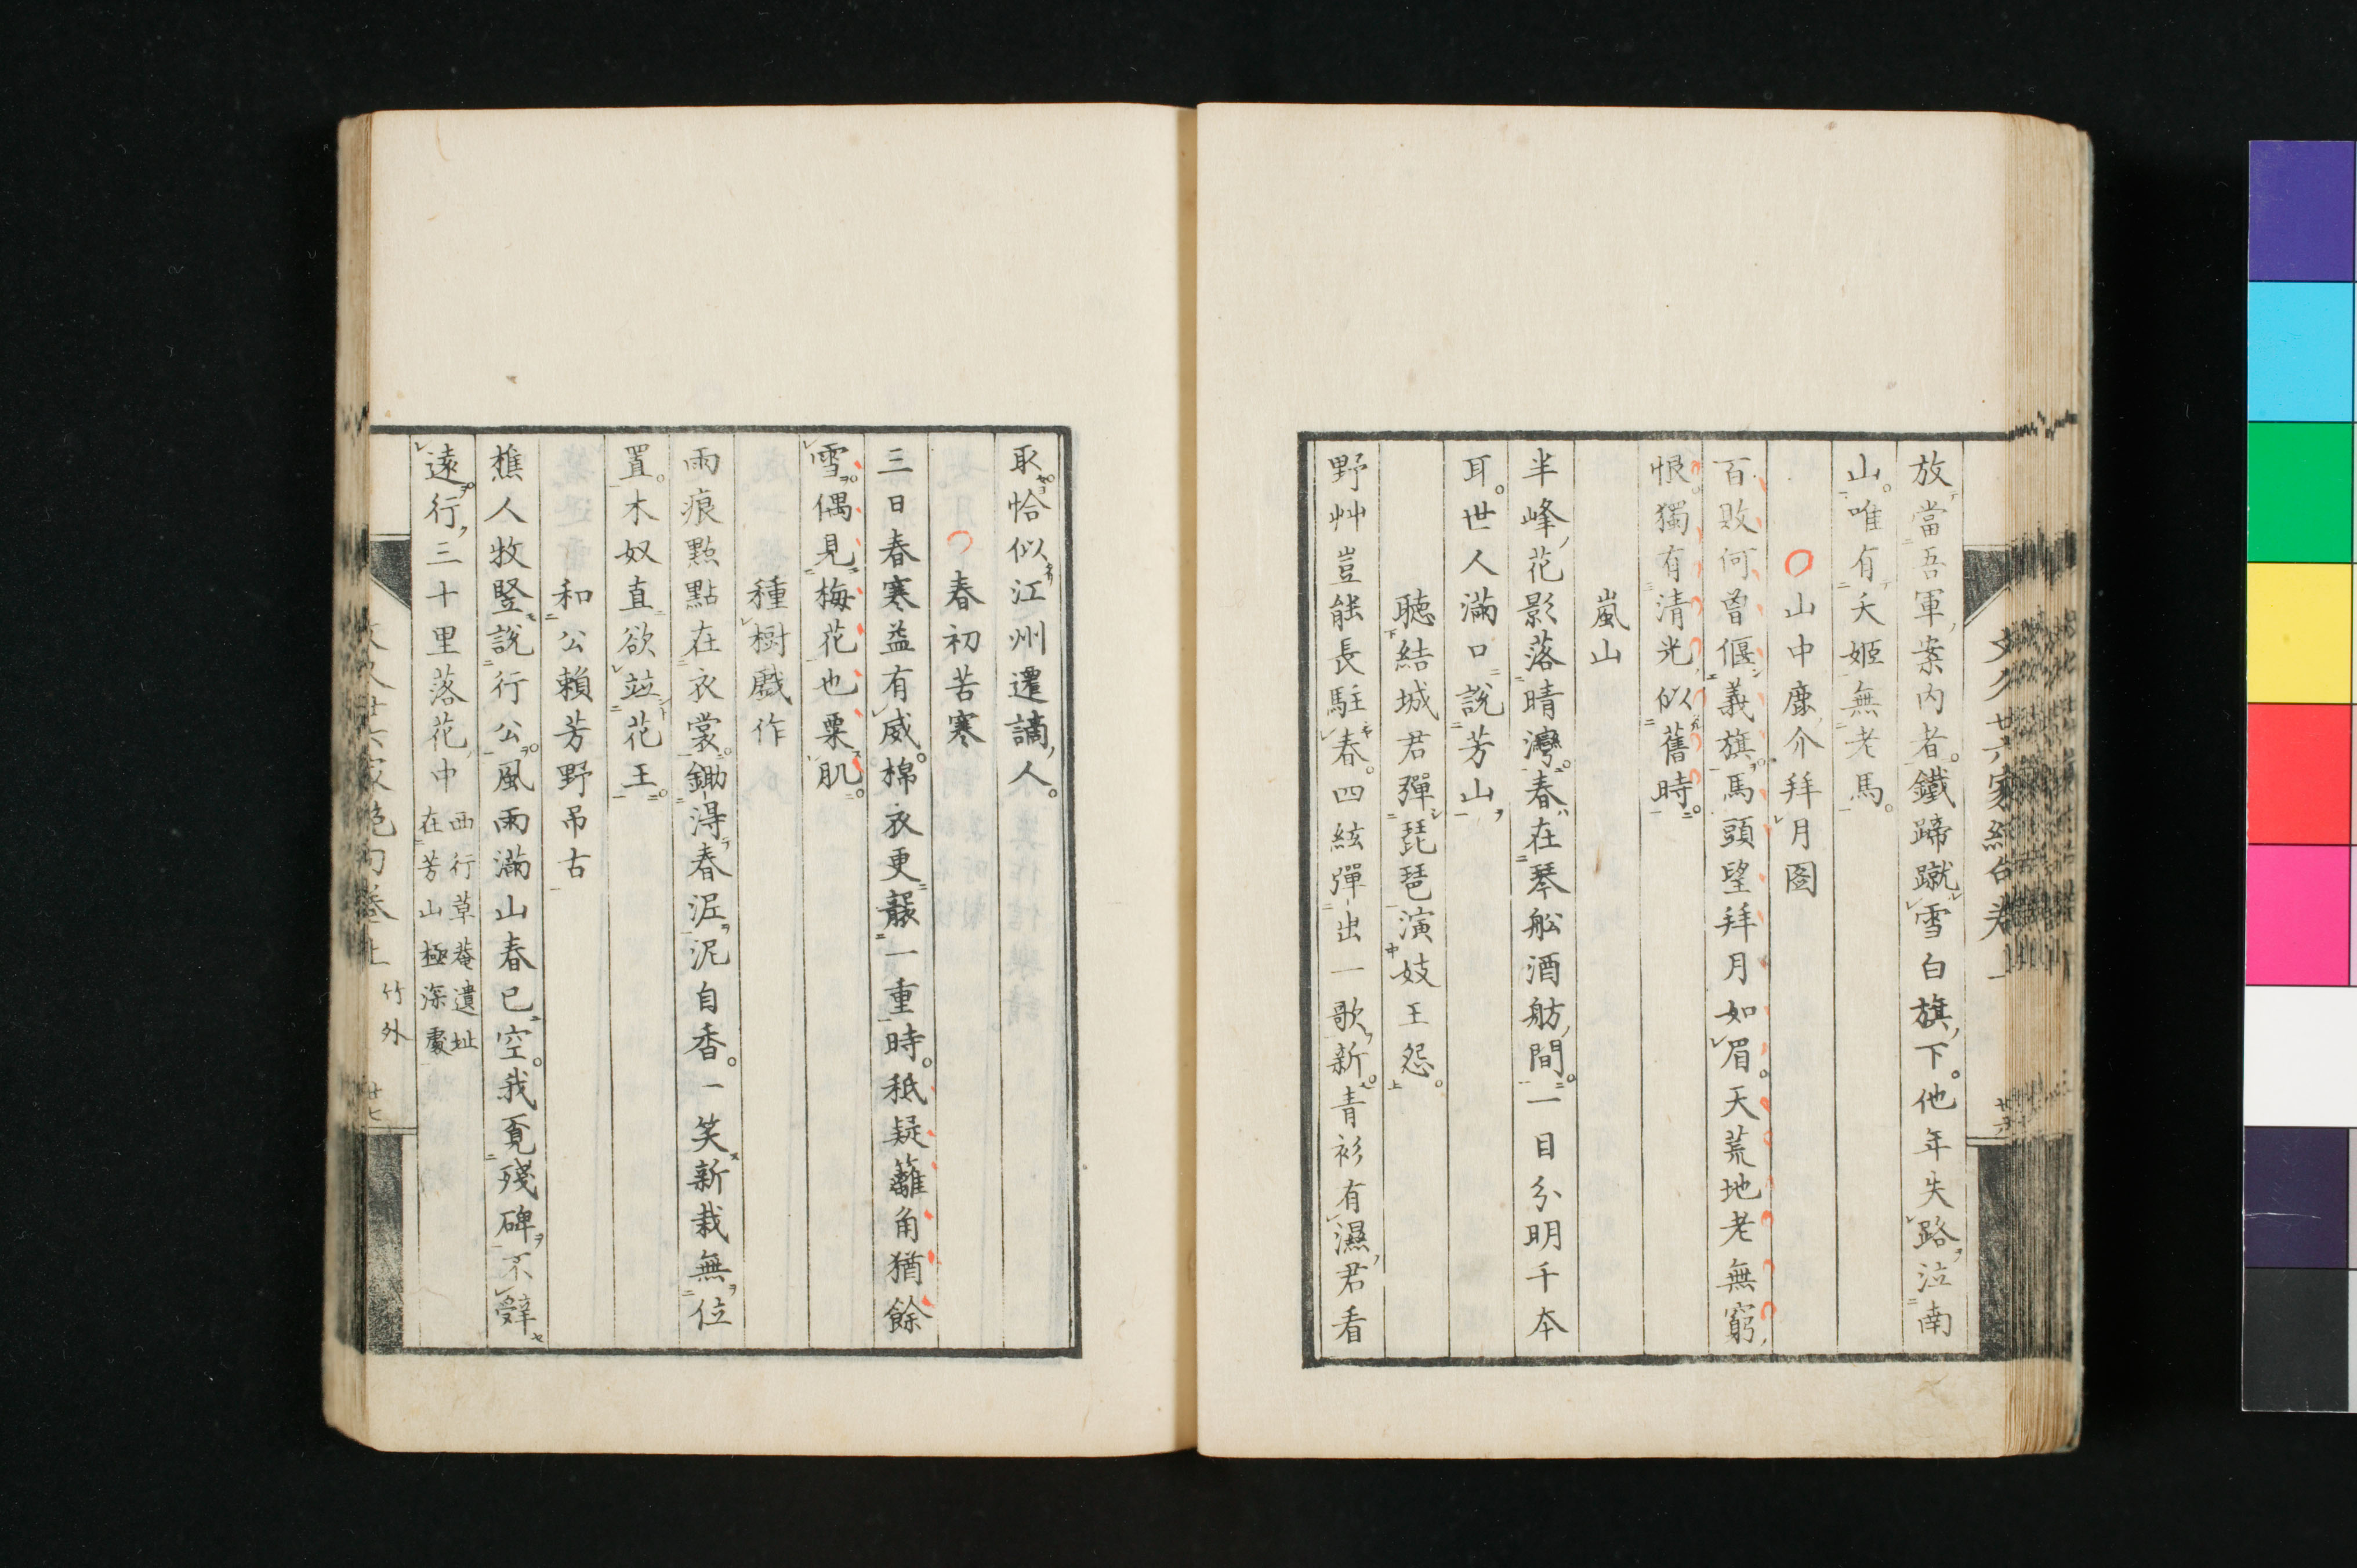 放當吾軍案内者。鐵蹄蹴雪白旗下。他年失路泣南
山。唯有夭姬無老馬。
山中鹿介拜月圖
百敗何曾偃義旗。馬頭望拜月如眉。天荒地老無窮
恨。獨有清光似舊時。
嵐山
半峰花影落晴灣。春在琴舩酒舫間。一目分明千本
耳。世人滿口說芳山
聽結城君彈琵琶演妓王怨。
野艸豈能長駐春。四絃彈出一歌新。青衫有濕君看
取。恰似江州遷謫人。
春初苦寒
三日春寒益有威。棉衣更襲一重時。秖疑蘺角猶餘
雪。偶見梅花也粟肌。
種樹戲作
雨痕點點在衣裳。鋤得春泥泥自香。一笑新栽無位
置。木奴直欲竝花王。
和公賴芳野吊古
樵人牧竪說行公。風雨滿山春已空。我覔殘碑不辭
遠。行三十里落花中
西行草菴遺址
在芳山極深處
文久廿六家絶句卷上 竹外 廿七